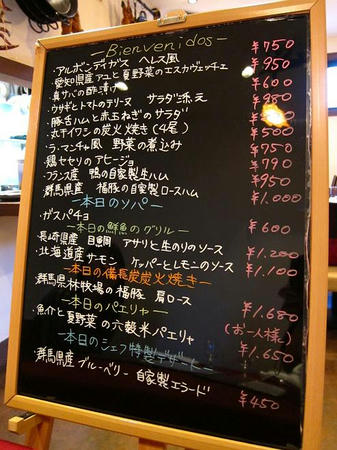 —Bienvenidos—
・アルボンディガス ヘレス風 ¥750
・愛知県産アユと夏野菜のエスカヴェッチェ ¥950
・真サバの酢漬け ¥600
・ウサギとトマトのテリーヌ サラダ添え ¥980
・豚舌ハムと赤玉ねぎのサラダ
・丸干イワシの炭火焼き(4尾) ¥500
・ラ・マンチャ風 野菜の煮込み ¥750
・鶏セセリのアヒージョ ¥790
・フランス産 鴨の自家製生ハム ¥950
・群馬県産 福豚の自家製ロースハム ¥1.000
—本日のソパ—
・ガスパチョ ¥600
—本日の鮮魚のグリル—
・長崎県産 目鯛 アサリと生のりのソース ¥1.200
・北海道産サーモン ケッパーとレモンのソース ¥1.100
—本日の備長炭炭火焼き—
・群馬県林牧場の福豚 肩ロース ¥1.680
—本日のパエリャ— (お一人様)
・魚介と夏野菜の六穀米パエリャ ¥1.650
—本日のシェフ特製デザート—
・群馬県産ブルーベリー 自家製エラード ¥450